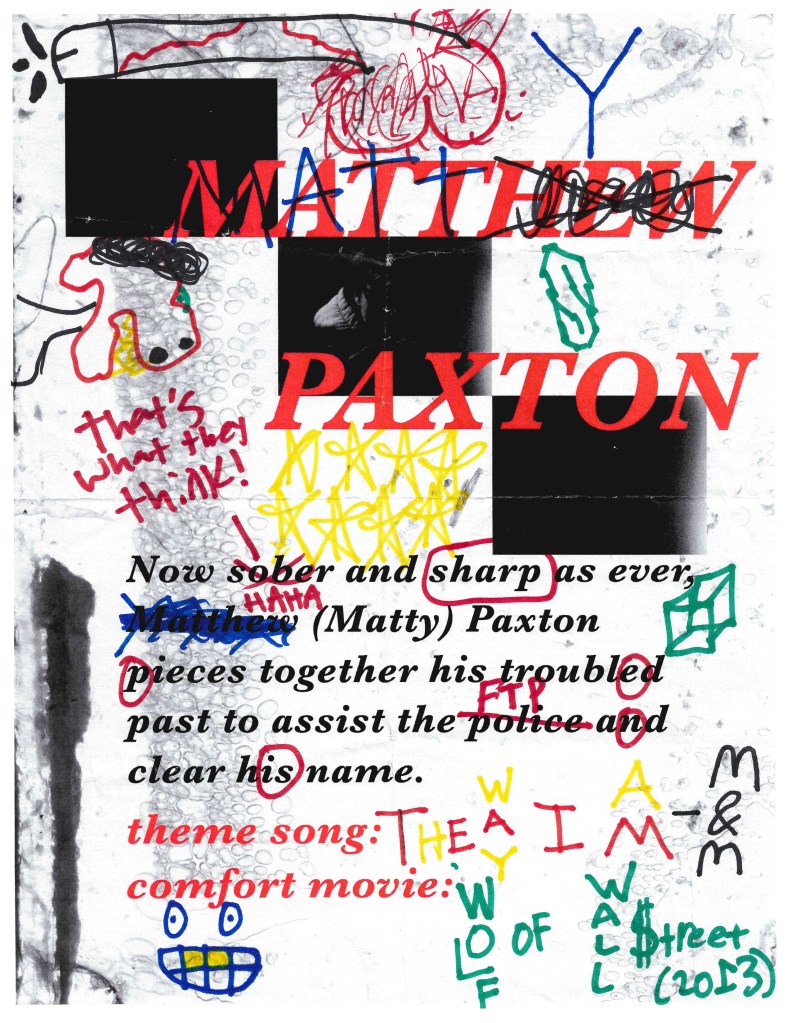 Y
MATT
MATTHEW
PAXTON
that's
what they
think!
Now sober and sharp as ever,
HAHA
Matthew (Matty) Paxton
pieces together his troubled
FTP
past to assist the police and
clear his name.
theme song: THE WAY I AM - M&M
comfort movie: WOLF OF WALL $treet (2013)